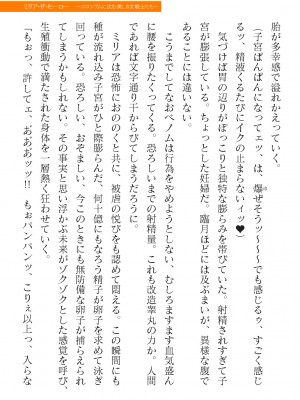 胎が多幸感で溢れかえっていく。
「子宮ぱんぱんになってェッ、は、爆ぜそうッ～～～でも感じるぅ、すごく感じ
るッ、精液くるたびにイクの止まらないィッ♥」
気づけば胃の辺りがぽっこりと独特な膨らみを帯びていた。射精されすぎて子
宮が膨張している。ちょっとした妊婦だ。臨月ほどには及ぶまいが、異様な腹で
こうまでしてなおベノムは行為をやめようとしない。むしろますます血気盛ん
に腰を振りたくってくる。恐ろしいまでの射精量。これも改造睾丸の力か。人間
であれば文字通り干からびてしまうだろうに。
ミリアは恐怖におののくと共に、被虐の悦びをも認めて悶える。この瞬間にも
種が流れ込み子宮がひと際膨らんだ、何十億にもなろう精子が卵子を求めて泳ぎ
回っている。恐ろしい、おぞましい、今このときにも無防備な卵子が捕えられ
てしまうかもしれない。その事実と思い浮かぶ未来がゾクゾクとした感覚を呼び、
生殖衝動で満たされた身体を一層熱く狂わせていく。
「もぉっ、許してェ、あああッッ!!　もぉパンパンッ、こりぇ以上っ、入らな